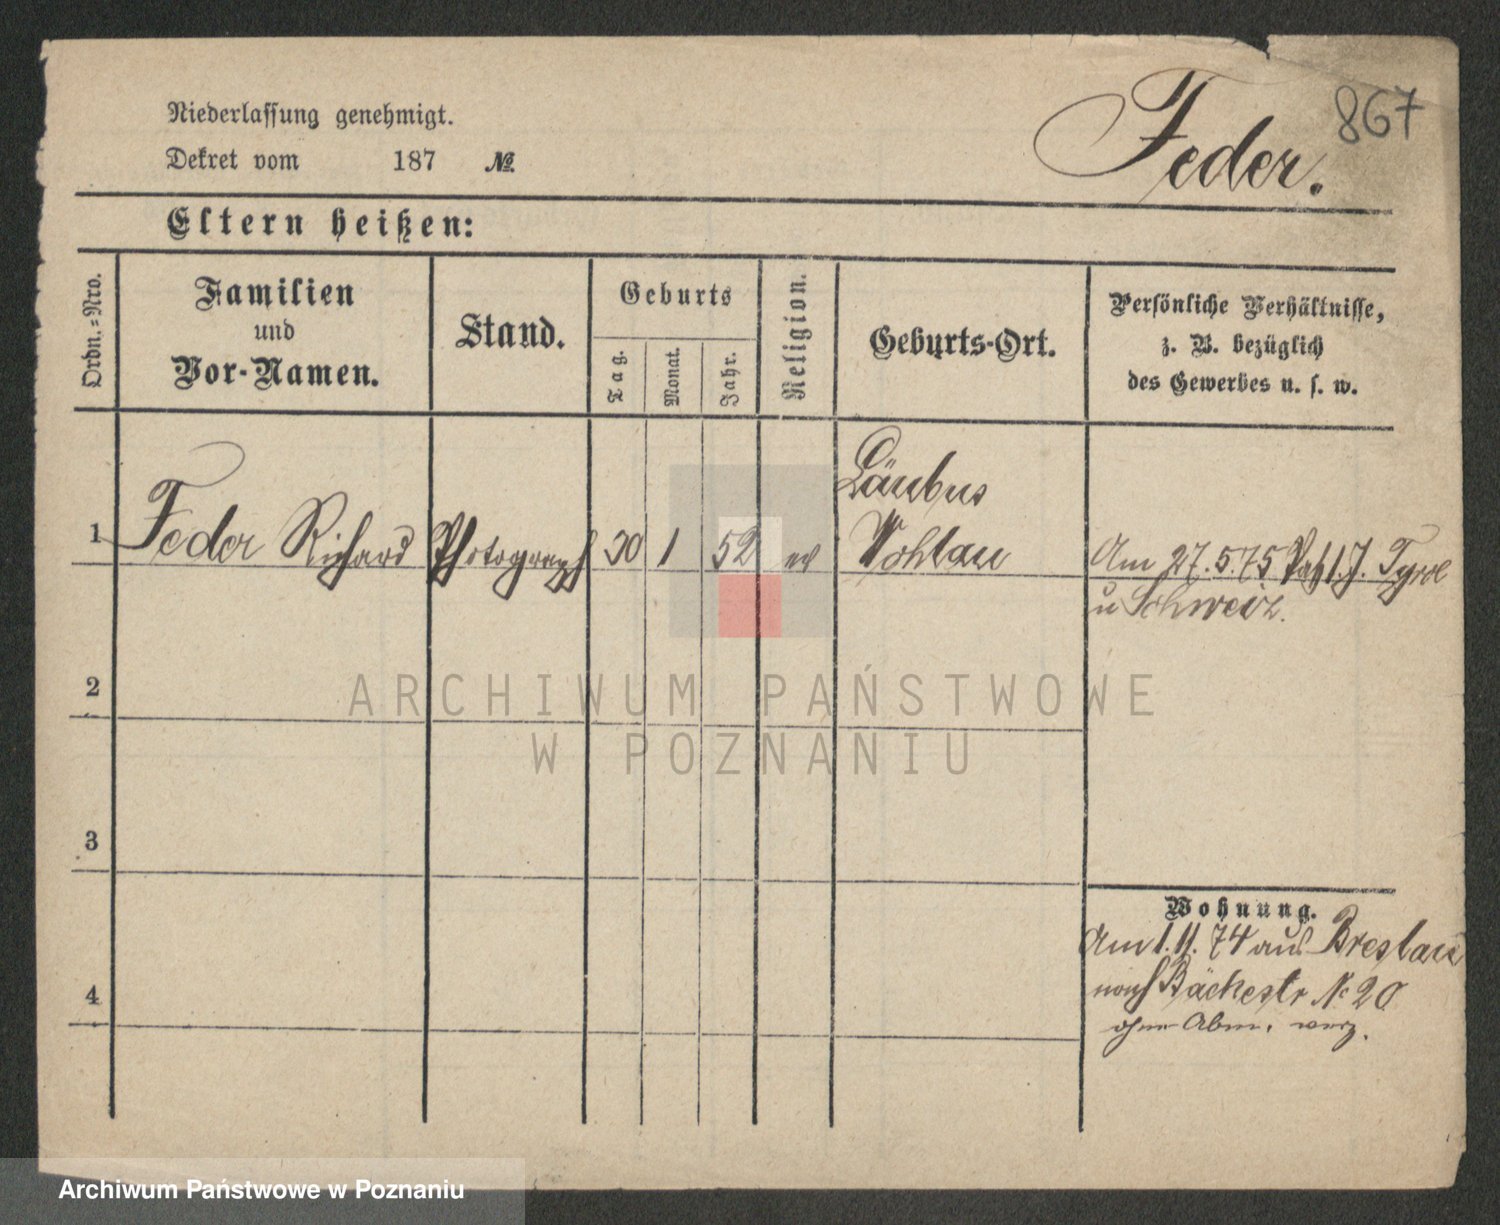 Niederlassung genehmigt.
Dekret vom 187 №
Feder.
867
Eltern heißen:
Ordn.=Nro.
Familien
und
Vor-Namen.
Stand.
Geburts
Tag.
Monat.
Jahr.
Religion.
Geburts-Ort.
Persönliche Verhältnisse,
z. B. bezüglich
des Gewerbes u. s. w.
Läubus
1 Feder Richard Photograph 30 1 52 Wohlau Am 27.5.75 1 J. Tyrol
u Schweiz.
2
3
4
Wohnung.
Am 1.11.74 aus Breslau
nach Bäckestr № 20
ohne Abm.
ARCHIWUM PAŃSTWOWE
W POZNANIU
Archiwum Państwowe w Poznaniu